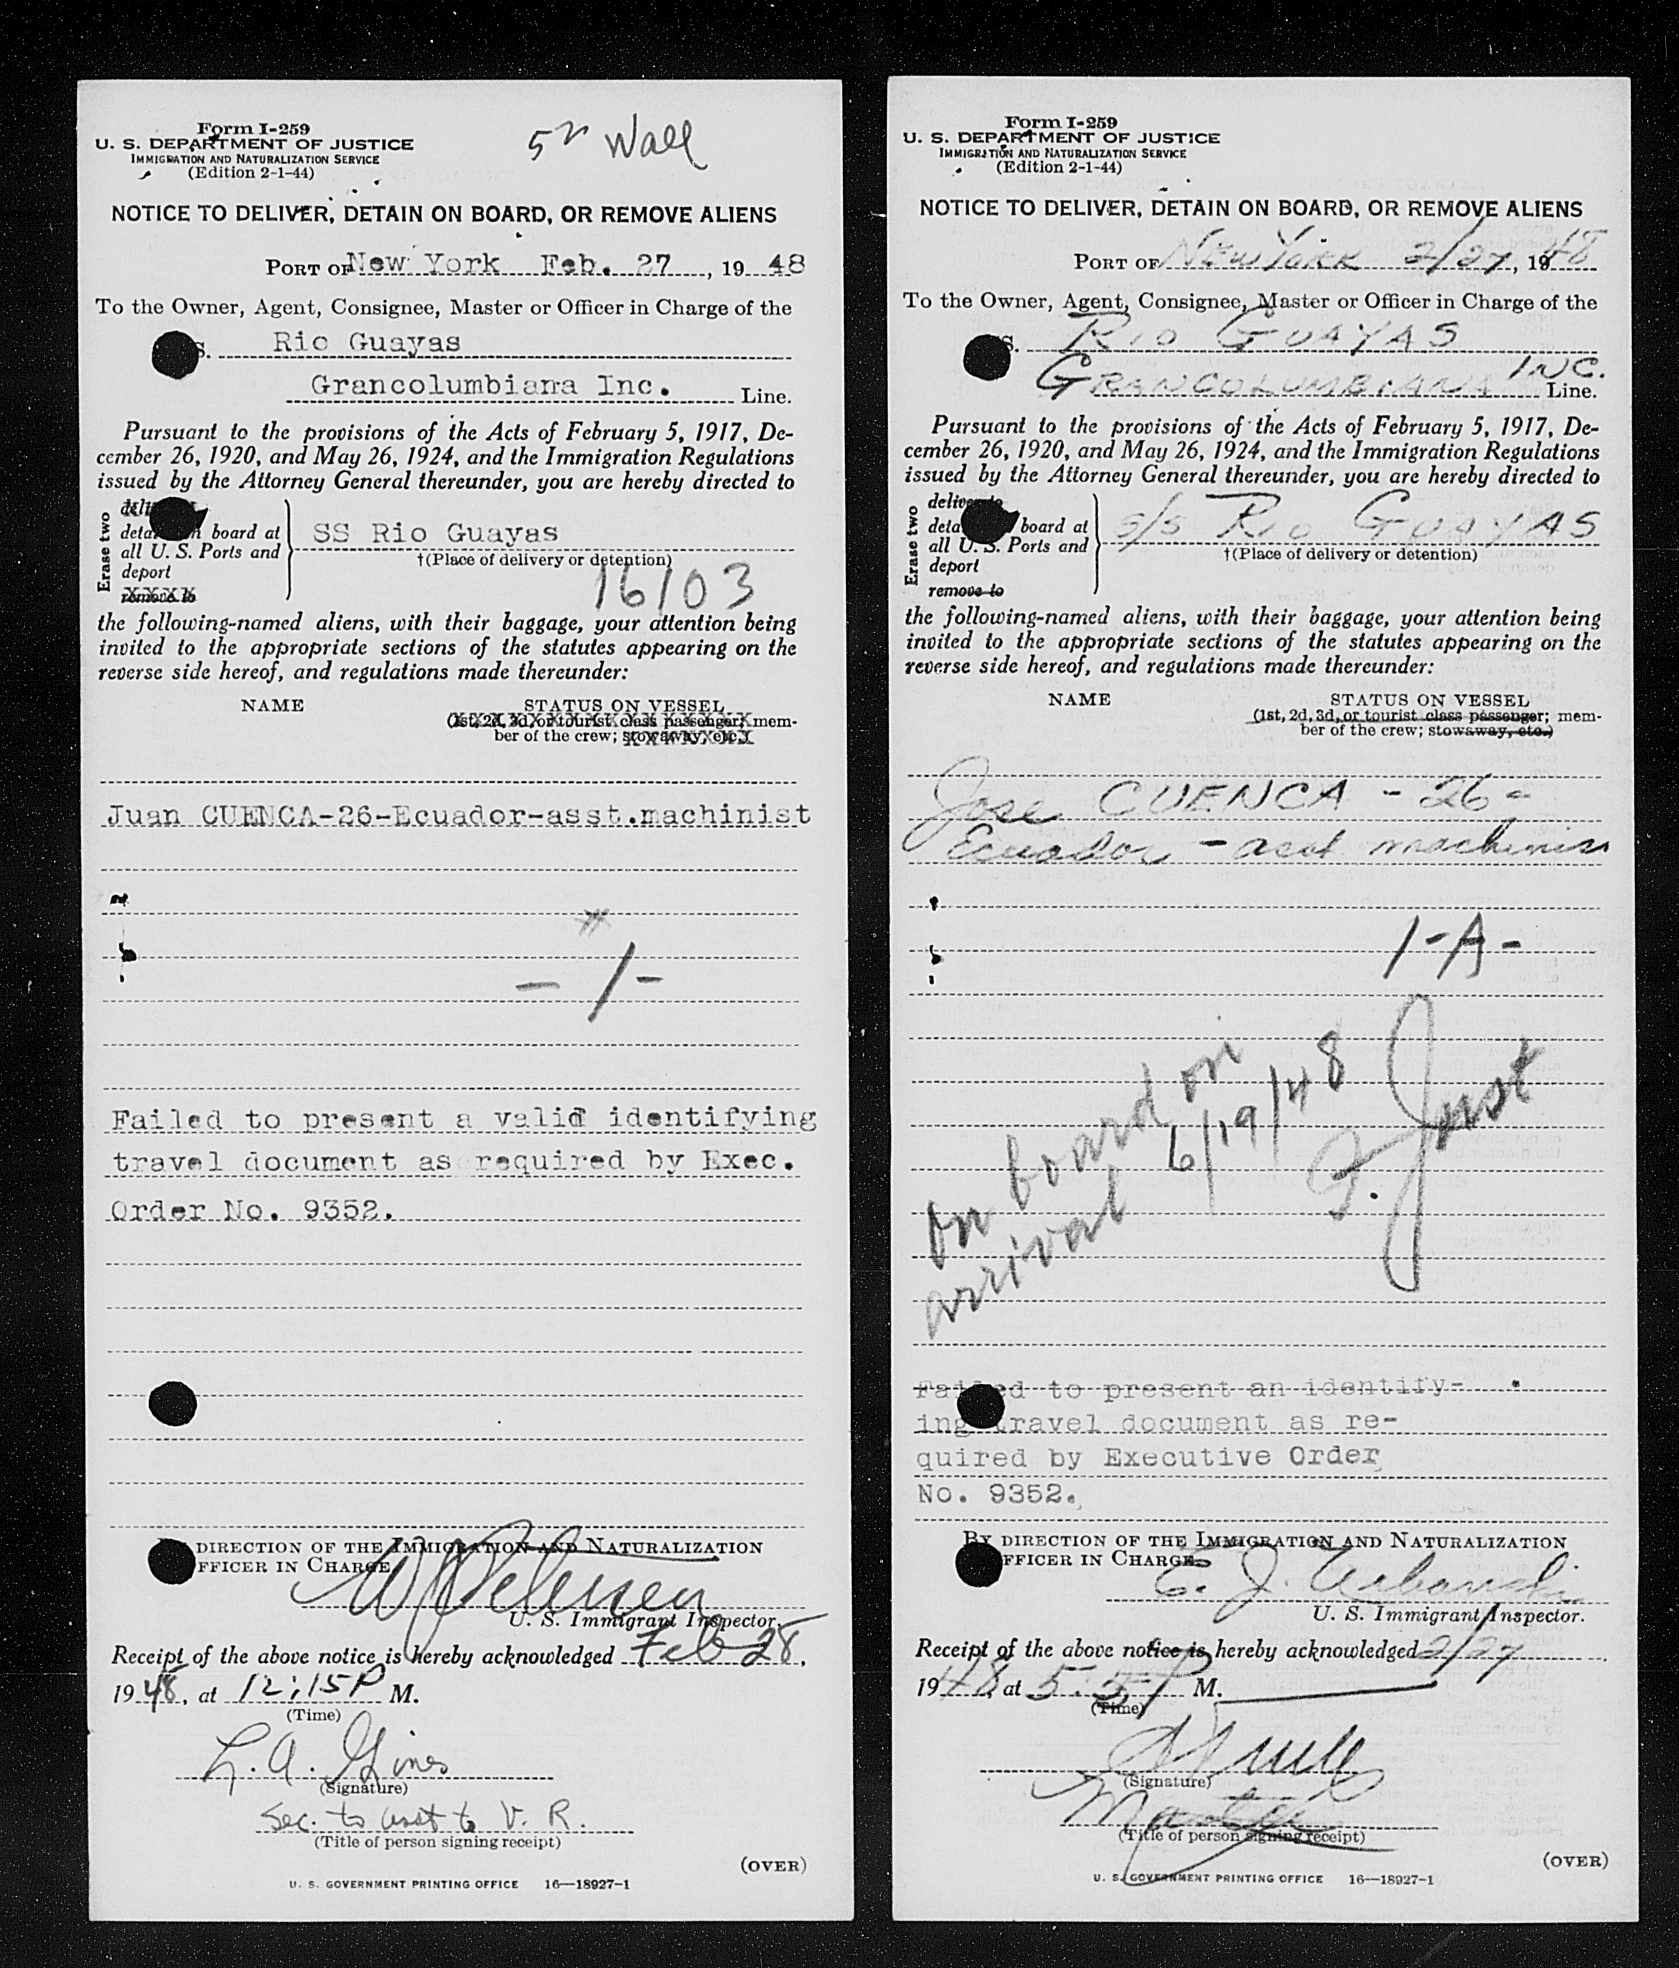 Form I-259
U. S. DEPARTMENT OF JUSTICE
IMMIGRATION AND NATURALIZATION SERVICE
(Edition 2-1-44)
Wall
NOTICE TO DELIVER, DETAIN ON BOARD, OR REMOVE ALIENS
PORT OF New York Feb. 27, 1948
To the Owner, Agent, Consignee, Master or Officer in Charge of the
S. Rio Guayas
Grancolumbiana Inc. Line.
Pursuant to the provisions of the Acts of February 5, 1917, De-
cember 26, 1920, and May 26, 1924, and the Immigration Regulations
issued by the Attorney General thereunder, you are hereby directed to
Erase two
board at
all U. S. Ports and
deport
remove to
SS Rio Guayas
†(Place of delivery or detention)
16103
the following-named aliens, with their baggage, your attention being
invited to the appropriate sections of the statutes appearing on the
reverse side hereof, and regulations made thereunder:
NAME STATUS ON VESSEL
(1st, 2d, 3d, or tourist class passenger; mem-
ber of the crew; stowaway, etc.)
Juan CUENCA-26-Ecuador-asst.machinist
- 1 -
Failed to present a valid identifying
travel document as required by Exec.
Order No. 9352.
DIRECTION OF THE IMMIGRATION AND NATURALIZATION
OFFICER IN CHARGE
U. S. Immigrant Inspector.
Receipt of the above notice is hereby acknowledged Feb 28,
1948, at 12:15 P M.
(Time)
L. A. Gines
(Signature)
Sec. to asst to V. R.
(Title of person signing receipt)
(OVER)
U. S. GOVERNMENT PRINTING OFFICE 16—18927-1
Form I-259
U. S. DEPARTMENT OF JUSTICE
IMMIGRATION AND NATURALIZATION SERVICE
(Edition 2-1-44)
NOTICE TO DELIVER, DETAIN ON BOARD, OR REMOVE ALIENS
PORT OF NEW YORK 2/27, 1948
To the Owner, Agent, Consignee, Master or Officer in Charge of the
S. RIO GUAYAS
GRANCOLUMBIANA INC. Line.
Pursuant to the provisions of the Acts of February 5, 1917, De-
cember 26, 1920, and May 26, 1924, and the Immigration Regulations
issued by the Attorney General thereunder, you are hereby directed to
Erase two
deliver to
board at
all U. S. Ports and
deport
remove to
S/S RIO GUAYAS
†(Place of delivery or detention)
the following-named aliens, with their baggage, your attention being
invited to the appropriate sections of the statutes appearing on the
reverse side hereof, and regulations made thereunder:
NAME STATUS ON VESSEL
(1st, 2d, 3d, or tourist class passenger; mem-
ber of the crew; stowaway, etc.)
Jose CUENCA - 26 -
Ecuador - asst machinis
1-A-
On board on
arrival 6/19/48
Failed to present an identify-
ing travel document as re-
quired by Executive Order
No. 9352.
BY DIRECTION OF THE IMMIGRATION AND NATURALIZATION
OFFICER IN CHARGE.
E. J. Urbanski
U. S. Immigrant Inspector.
Receipt of the above notice is hereby acknowledged 2/27
1948 at P M.
(Time)
(Signature)
Master
(Title of person signing receipt)
(OVER)
U. S. GOVERNMENT PRINTING OFFICE 16—18927-1